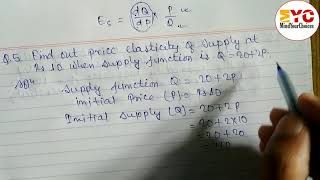 Es = dQ/dP × P/Q
MYC
MindYourChoices
Q.5 Find out Price elasticity of Supply at
Rs 10 when supply function is Q = 20+2P.
Solⁿ
Supply function Q = 20 + 2P
initial Price (P) = Rs 10
Initial supply (Q) = 20 + 2P
= 20 + 2×10
= 20 + 20
= 40